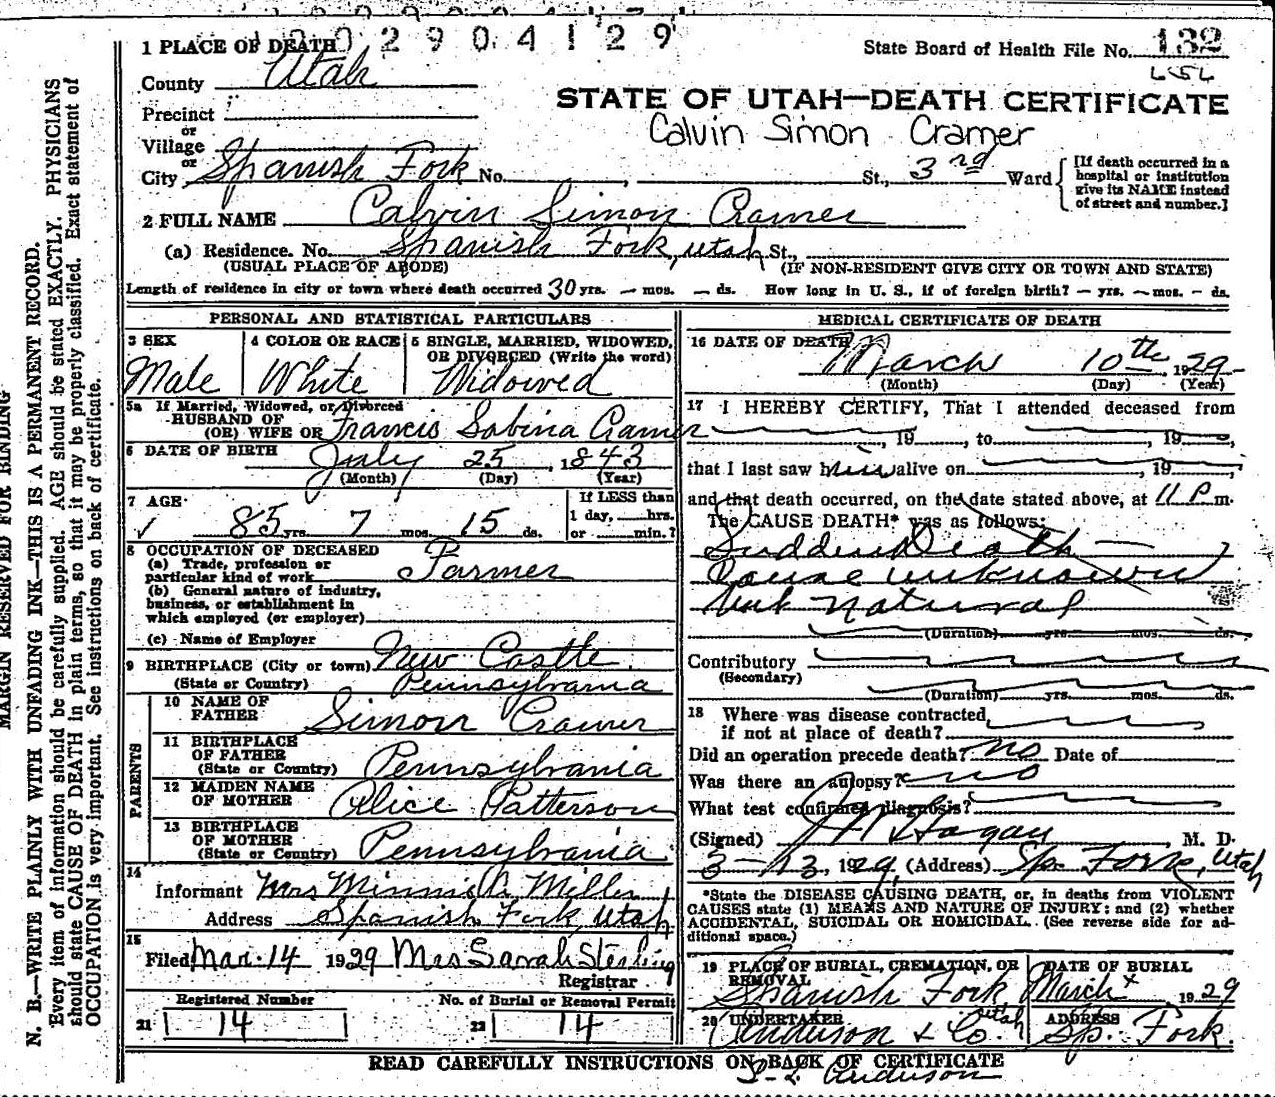 29 04129
1 PLACE OF DEATH
State Board of Health File No. 132
County Utah
STATE OF UTAH—DEATH CERTIFICATE
Precinct
or
Calvin Simon Cramer
Village
or
City Spanish Fork No. , St., 3rd Ward
[If death occurred in a hospital or institution give its NAME instead of street and number.]
2 FULL NAME Calvin Simon Cramer
(a) Residence. No. Spanish Fork, Utah St.,
(USUAL PLACE OF ABODE) (IF NON-RESIDENT GIVE CITY OR TOWN AND STATE)
Length of residence in city or town where death occurred 30 yrs. — mos. — ds. How long in U. S., if of foreign birth? — yrs. — mos. — ds.
PERSONAL AND STATISTICAL PARTICULARS
3 SEX
Male
4 COLOR OR RACE
White
5 SINGLE, MARRIED, WIDOWED,
OR DIVORCED (Write the word)
Widowed
5a If Married, Widowed, or Divorced
HUSBAND OF
(OR) WIFE OF Francis Sabina Cramer
6 DATE OF BIRTH July 25, 1843
(Month) (Day) (Year)
7 AGE
85 yrs. 7 mos. 15 ds.
If LESS than
1 day, hrs.
or min.?
8 OCCUPATION OF DECEASED
(a) Trade, profession or
particular kind of work Farmer
(b) General nature of industry,
business, or establishment in
which employed (or employer)
(c) Name of Employer
9 BIRTHPLACE (City or town) New Castle
(State or Country) Pennsylvania
PARENTS
10 NAME OF
FATHER Simon Cramer
11 BIRTHPLACE
OF FATHER
(State or Country) Pennsylvania
12 MAIDEN NAME
OF MOTHER Alice Patterson
13 BIRTHPLACE
OF MOTHER
(State or Country) Pennsylvania
14
Informant Mrs Minnie Miller
Address Spanish Fork, Utah
15
Filed Mar. 14 1929 Mrs Sarah Sterling
Registrar
Registered Number
21 14
No. of Burial or Removal Permit
22 14
MEDICAL CERTIFICATE OF DEATH
16 DATE OF DEATH
March 10th 1929
(Month) (Day) (Year)
17 I HEREBY CERTIFY, That I attended deceased from
, 19 , to , 19 ,
that I last saw him alive on , 19
and that death occurred, on the date stated above, at 11 P m.
The CAUSE DEATH* was as follows:
Sudden Death —
Cause unknown
but natural
(Duration) yrs. mos. ds.
Contributory
(Secondary)
(Duration) yrs. mos. ds.
18 Where was disease contracted
if not at place of death?
Did an operation precede death? no Date of
Was there an autopsy? no
What test confirmed diagnosis?
(Signed) J W Hagan M. D.
3-13, 1929, (Address) Sp. Fork, Utah
*State the DISEASE CAUSING DEATH, or, in deaths from VIOLENT
CAUSES state (1) MEANS AND NATURE OF INJURY; and (2) whether
ACCIDENTAL, SUICIDAL OR HOMICIDAL. (See reverse side for ad-
ditional space.)
19 PLACE OF BURIAL, CREMATION, OR
REMOVAL
Spanish Fork, Utah
DATE OF BURIAL
March 1929
20 UNDERTAKER
Anderson & Co.
ADDRESS
Sp. Fork.
READ CAREFULLY INSTRUCTIONS ON BACK OF CERTIFICATE
Anderson
MARGIN RESERVED FOR BINDING
N. B.—WRITE PLAINLY WITH UNFADING INK—THIS IS A PERMANENT RECORD.
Every item of information should be carefully supplied. AGE should be stated EXACTLY. PHYSICIANS
should state CAUSE OF DEATH in plain terms, so that it may be properly classified. Exact statement of
OCCUPATION is very important. See instructions on back of certificate.